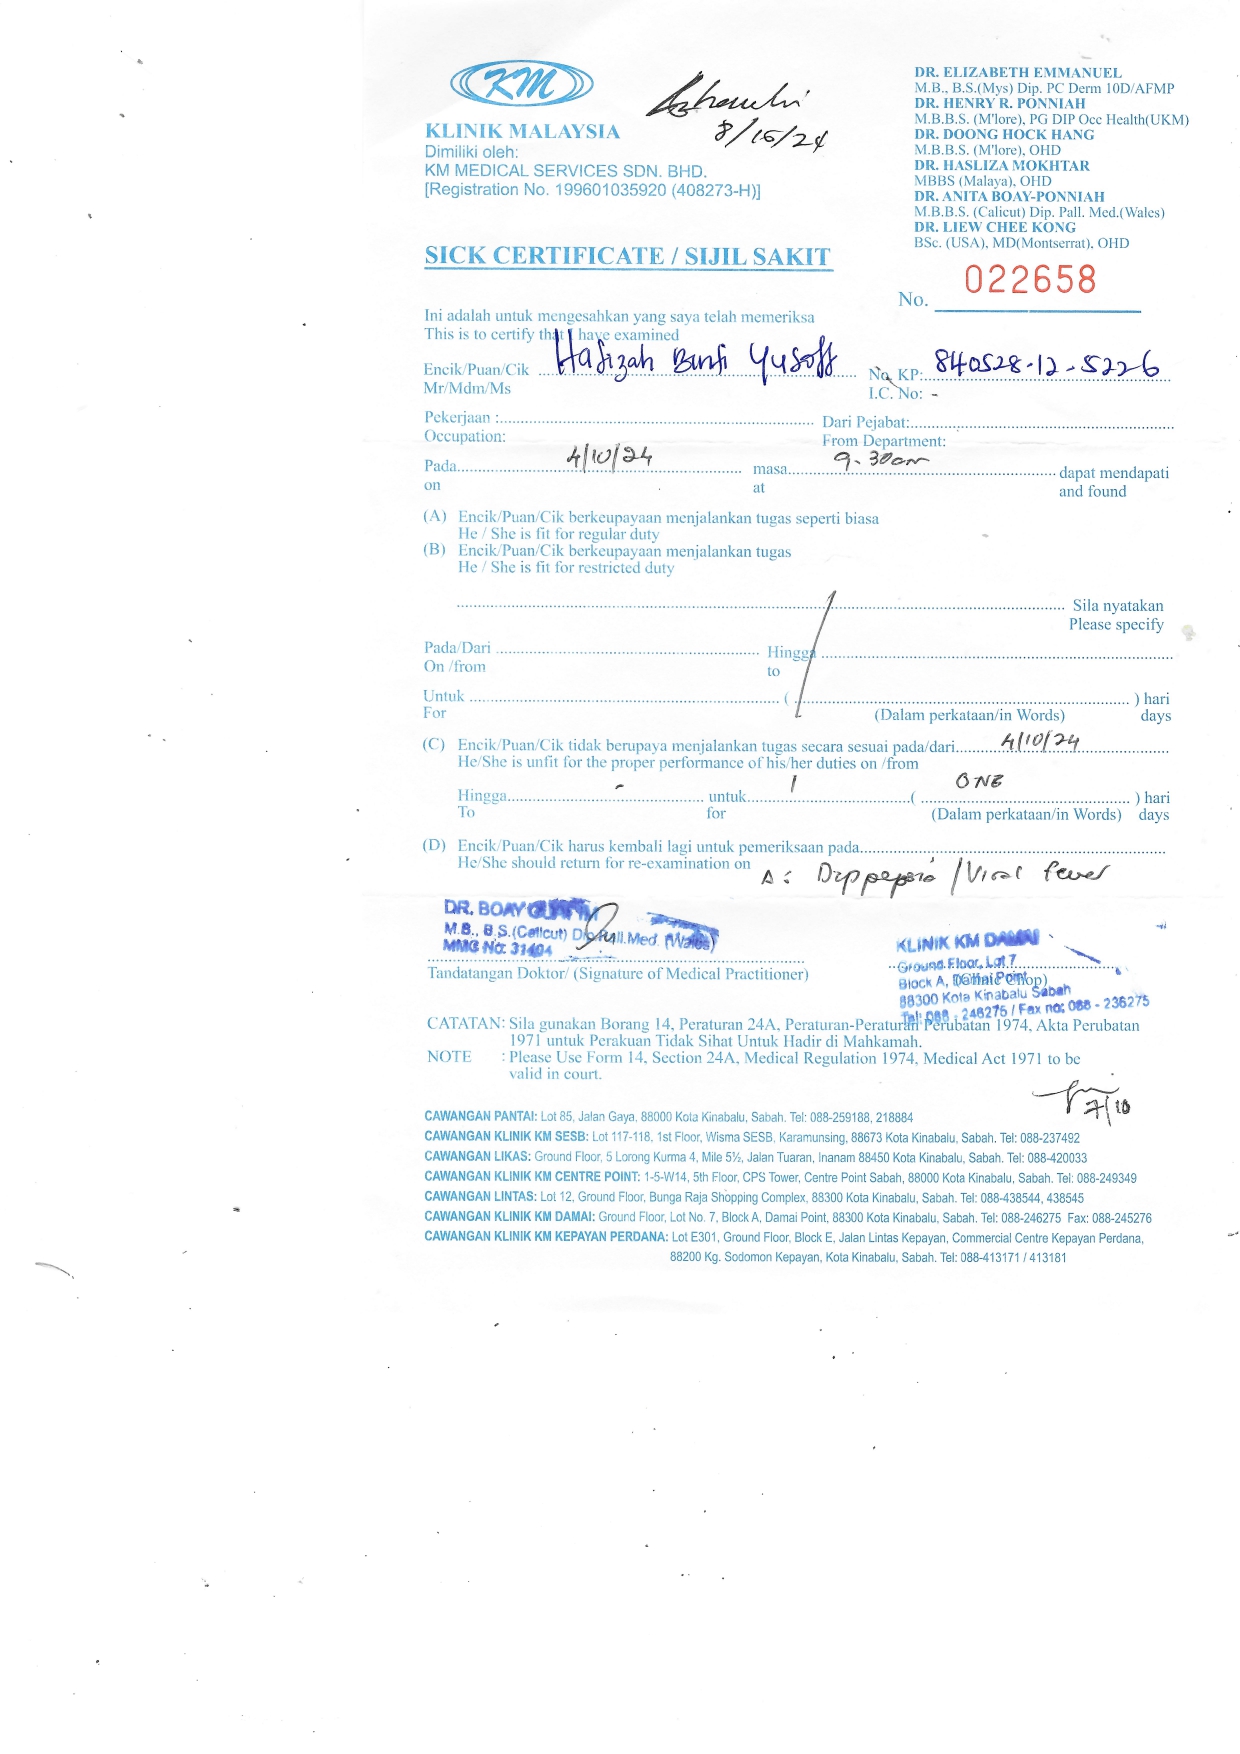 KM
KLINIK MALAYSIA
Dimiliki oleh:
KM MEDICAL SERVICES SDN. BHD.
[Registration No. 199601035920 (408273-H)]
DR. ELIZABETH EMMANUEL
M.B., B.S.(Mys) Dip. PC Derm 10D/AFMP
DR. HENRY R. PONNIAH
M.B.B.S. (M'lore), PG DIP Occ Health(UKM)
DR. DOONG HOCK HANG
M.B.B.S. (M'lore), OHD
DR. HASLIZA MOKHTAR
MBBS (Malaya), OHD
DR. ANITA BOAY-PONNIAH
M.B.B.S. (Calicut) Dip. Pall. Med.(Wales)
DR. LIEW CHEE KONG
BSc. (USA), MD(Montserrat), OHD
SICK CERTIFICATE / SIJIL SAKIT
No. 022658
Ini adalah untuk mengesahkan yang saya telah memeriksa
This is to certify that I have examined
Encik/Puan/Cik Hafizah Binti Yusoff No. KP: 840528-12-5226
Mr/Mdm/Ms I.C. No: -
Pekerjaan : Dari Pejabat:
Occupation: From Department:
Pada 4/10/24 masa 9.30am dapat mendapati
on at and found
(A) Encik/Puan/Cik berkeupayaan menjalankan tugas seperti biasa
He / She is fit for regular duty
(B) Encik/Puan/Cik berkeupayaan menjalankan tugas
He / She is fit for restricted duty
Sila nyatakan
Please specify
Pada/Dari Hingga
On /from to
Untuk ( ) hari
For (Dalam perkataan/in Words) days
(C) Encik/Puan/Cik tidak berupaya menjalankan tugas secara sesuai pada/dari 4/10/24
He/She is unfit for the proper performance of his/her duties on /from
Hingga - untuk 1 ( ONE ) hari
To for (Dalam perkataan/in Words) days
(D) Encik/Puan/Cik harus kembali lagi untuk pemeriksaan pada
He/She should return for re-examination on
/Viral fever
DR. BOAY
M.B., B.S.(Calicut) Dip. Pall.Med. (Wales)
MMC No: 31404
Tandatangan Doktor/ (Signature of Medical Practitioner)
KLINIK KM DAMAI
Ground Floor, Lot 7
Block A, Damai Point
88300 Kota Kinabalu Sabah
Tel: 088 - 246275 / Fax no: 088 - 236275
CATATAN: Sila gunakan Borang 14, Peraturan 24A, Peraturan-Peraturan Perubatan 1974, Akta Perubatan
1971 untuk Perakuan Tidak Sihat Untuk Hadir di Mahkamah.
NOTE : Please Use Form 14, Section 24A, Medical Regulation 1974, Medical Act 1971 to be
valid in court.
7/10
CAWANGAN PANTAI: Lot 85, Jalan Gaya, 88000 Kota Kinabalu, Sabah. Tel: 088-259188, 218884
CAWANGAN KLINIK KM SESB: Lot 117-118, 1st Floor, Wisma SESB, Karamunsing, 88673 Kota Kinabalu, Sabah. Tel: 088-237492
CAWANGAN LIKAS: Ground Floor, 5 Lorong Kurma 4, Mile 5½, Jalan Tuaran, Inanam 88450 Kota Kinabalu, Sabah. Tel: 088-420033
CAWANGAN KLINIK KM CENTRE POINT: 1-5-W14, 5th Floor, CPS Tower, Centre Point Sabah, 88000 Kota Kinabalu, Sabah. Tel: 088-249349
CAWANGAN LINTAS: Lot 12, Ground Floor, Bunga Raja Shopping Complex, 88300 Kota Kinabalu, Sabah. Tel: 088-438544, 438545
CAWANGAN KLINIK KM DAMAI: Ground Floor, Lot No. 7, Block A, Damai Point, 88300 Kota Kinabalu, Sabah. Tel: 088-246275 Fax: 088-245276
CAWANGAN KLINIK KM KEPAYAN PERDANA: Lot E301, Ground Floor, Block E, Jalan Lintas Kepayan, Commercial Centre Kepayan Perdana,
88200 Kg. Sodomon Kepayan, Kota Kinabalu, Sabah. Tel: 088-413171 / 413181